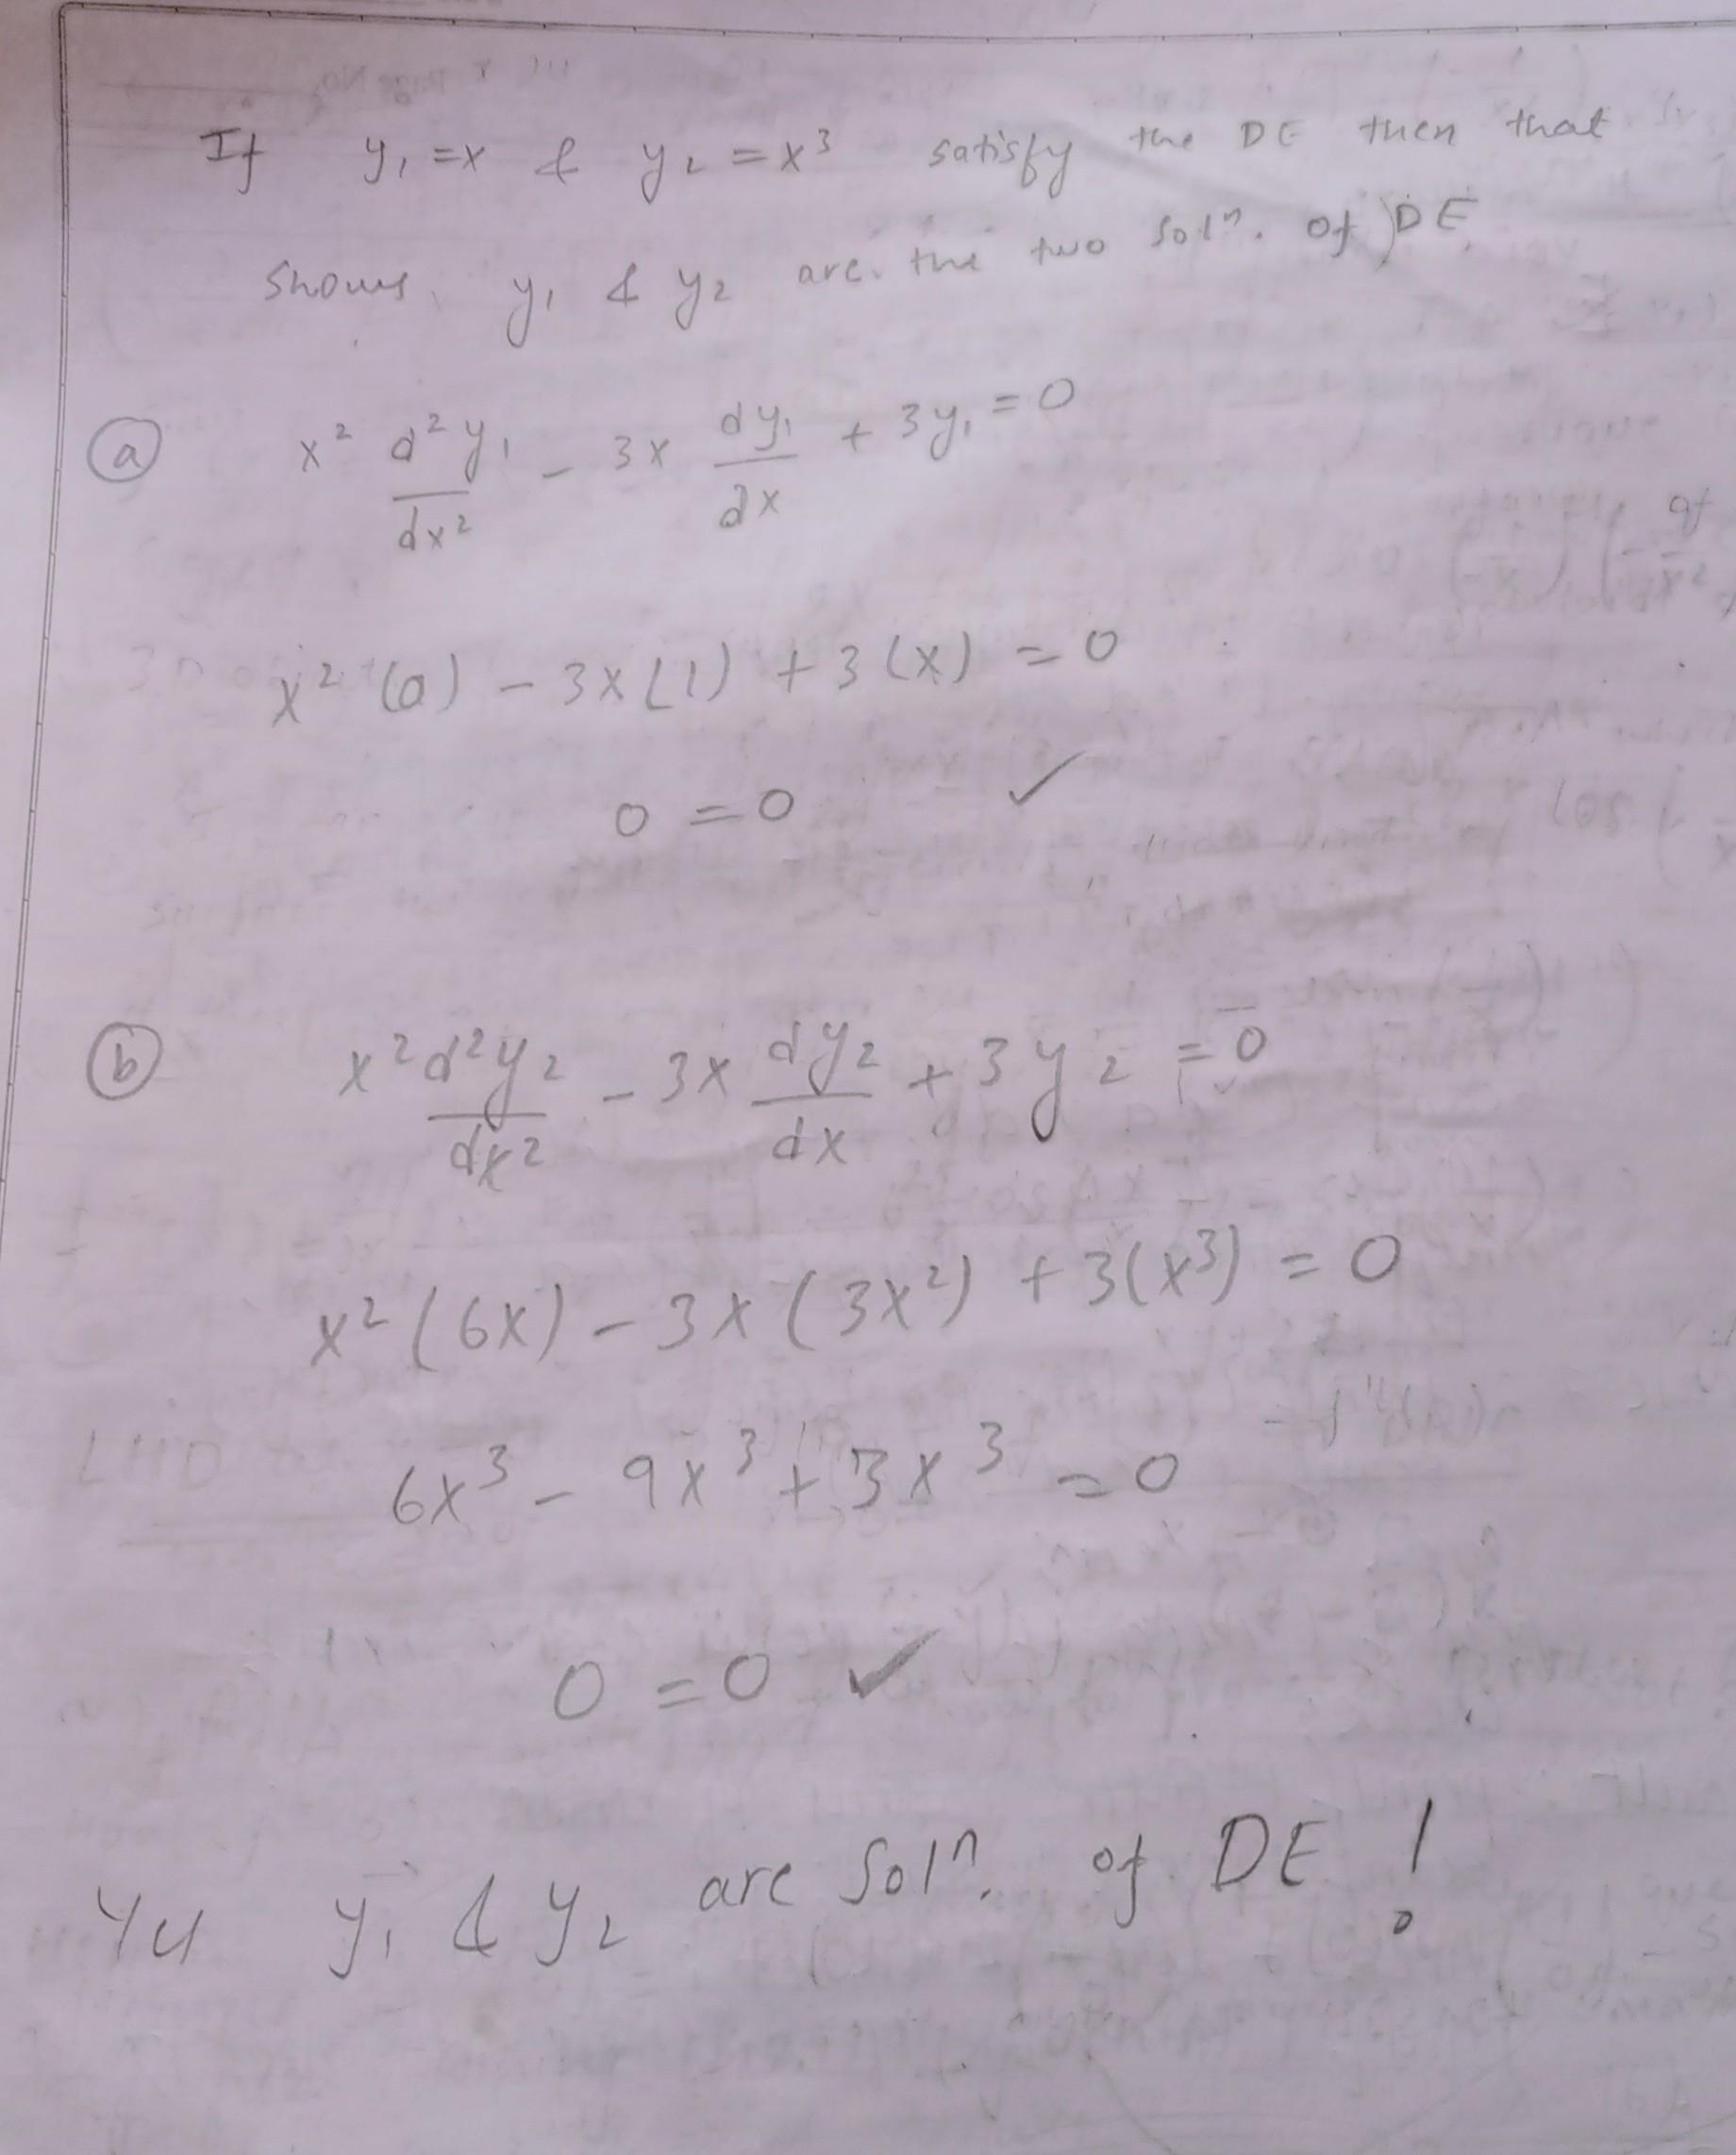 If y₁ = x & y₂ = x³ satisfy the DE then that
shows y₁ & y₂ are the two solⁿ. of DE
(a) x² d²y₁/dx² - 3x dy₁/dx + 3y₁ = 0
x² (0) - 3x(1) + 3(x) = 0
0 = 0 ✓
(b) x² d²y₂/dx² - 3x dy₂/dx + 3y₂ = 0
x² (6x) - 3x (3x²) + 3(x³) = 0
6x³ - 9x³ + 3x³ = 0
0 = 0 ✓
y₁ & y₂ are solⁿ. of DE !